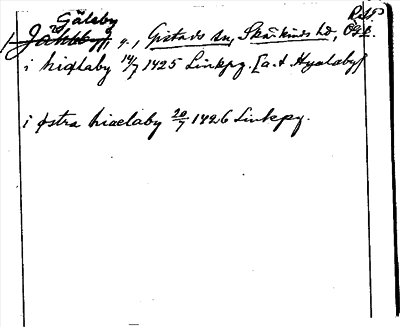 Gälsby
g., Gustavs sn, Skärkinds hd, Ög.
i hiqlaby 14/7 1425 Linkpg. [a.t Hyalaby]
i østra hiaelaby 20/7 1426 Linkpg.